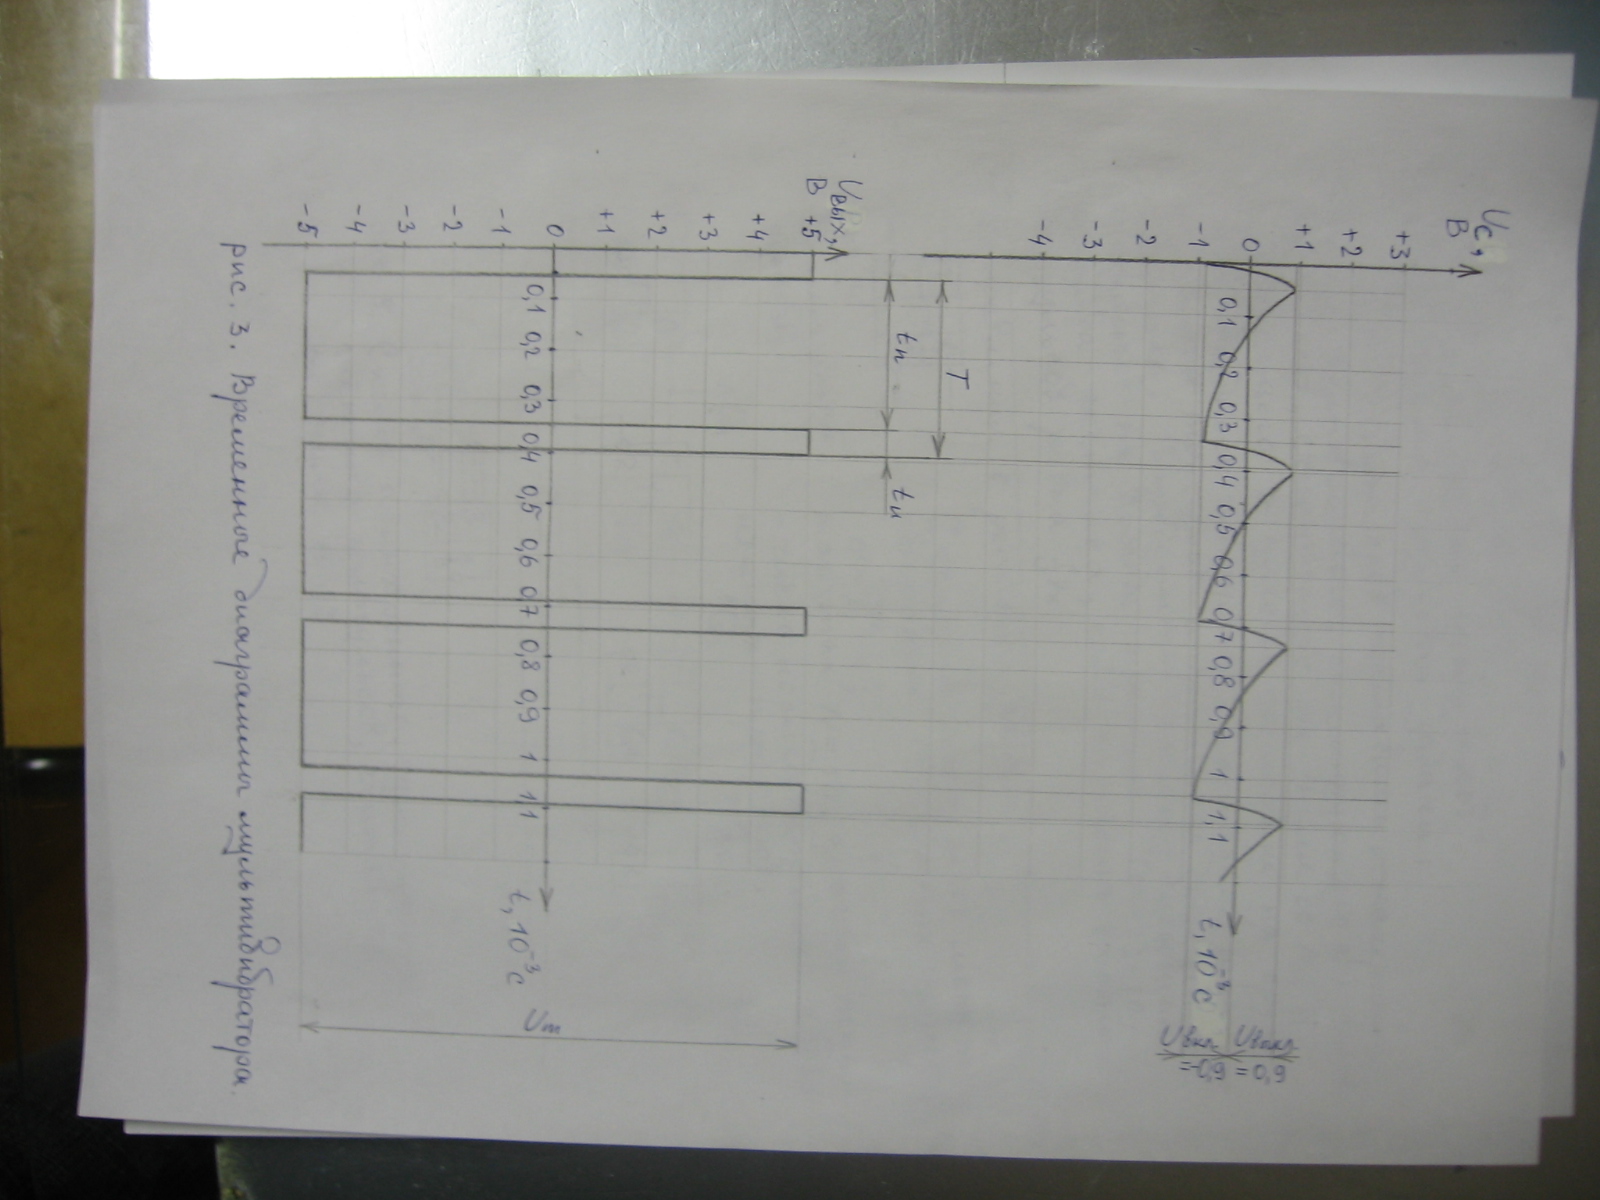 Uс,
В
+3
+2
+1
0
-1
-2
-3
-4
0,1 0,2 0,3 0,4 0,5 0,6 0,7 0,8 0,9 1 1,1 t, 10⁻³ с
Uвыкл = 0,9
Uвкл = -0,9
T
tп tи
Uвых,
В
+5
+4
+3
+2
+1
0
-1
-2
-3
-4
-5
0,1 0,2 0,3 0,4 0,5 0,6 0,7 0,8 0,9 1 1,1 t, 10⁻³ с
Um
рис. 3. Временные диаграммы мультивибратора.